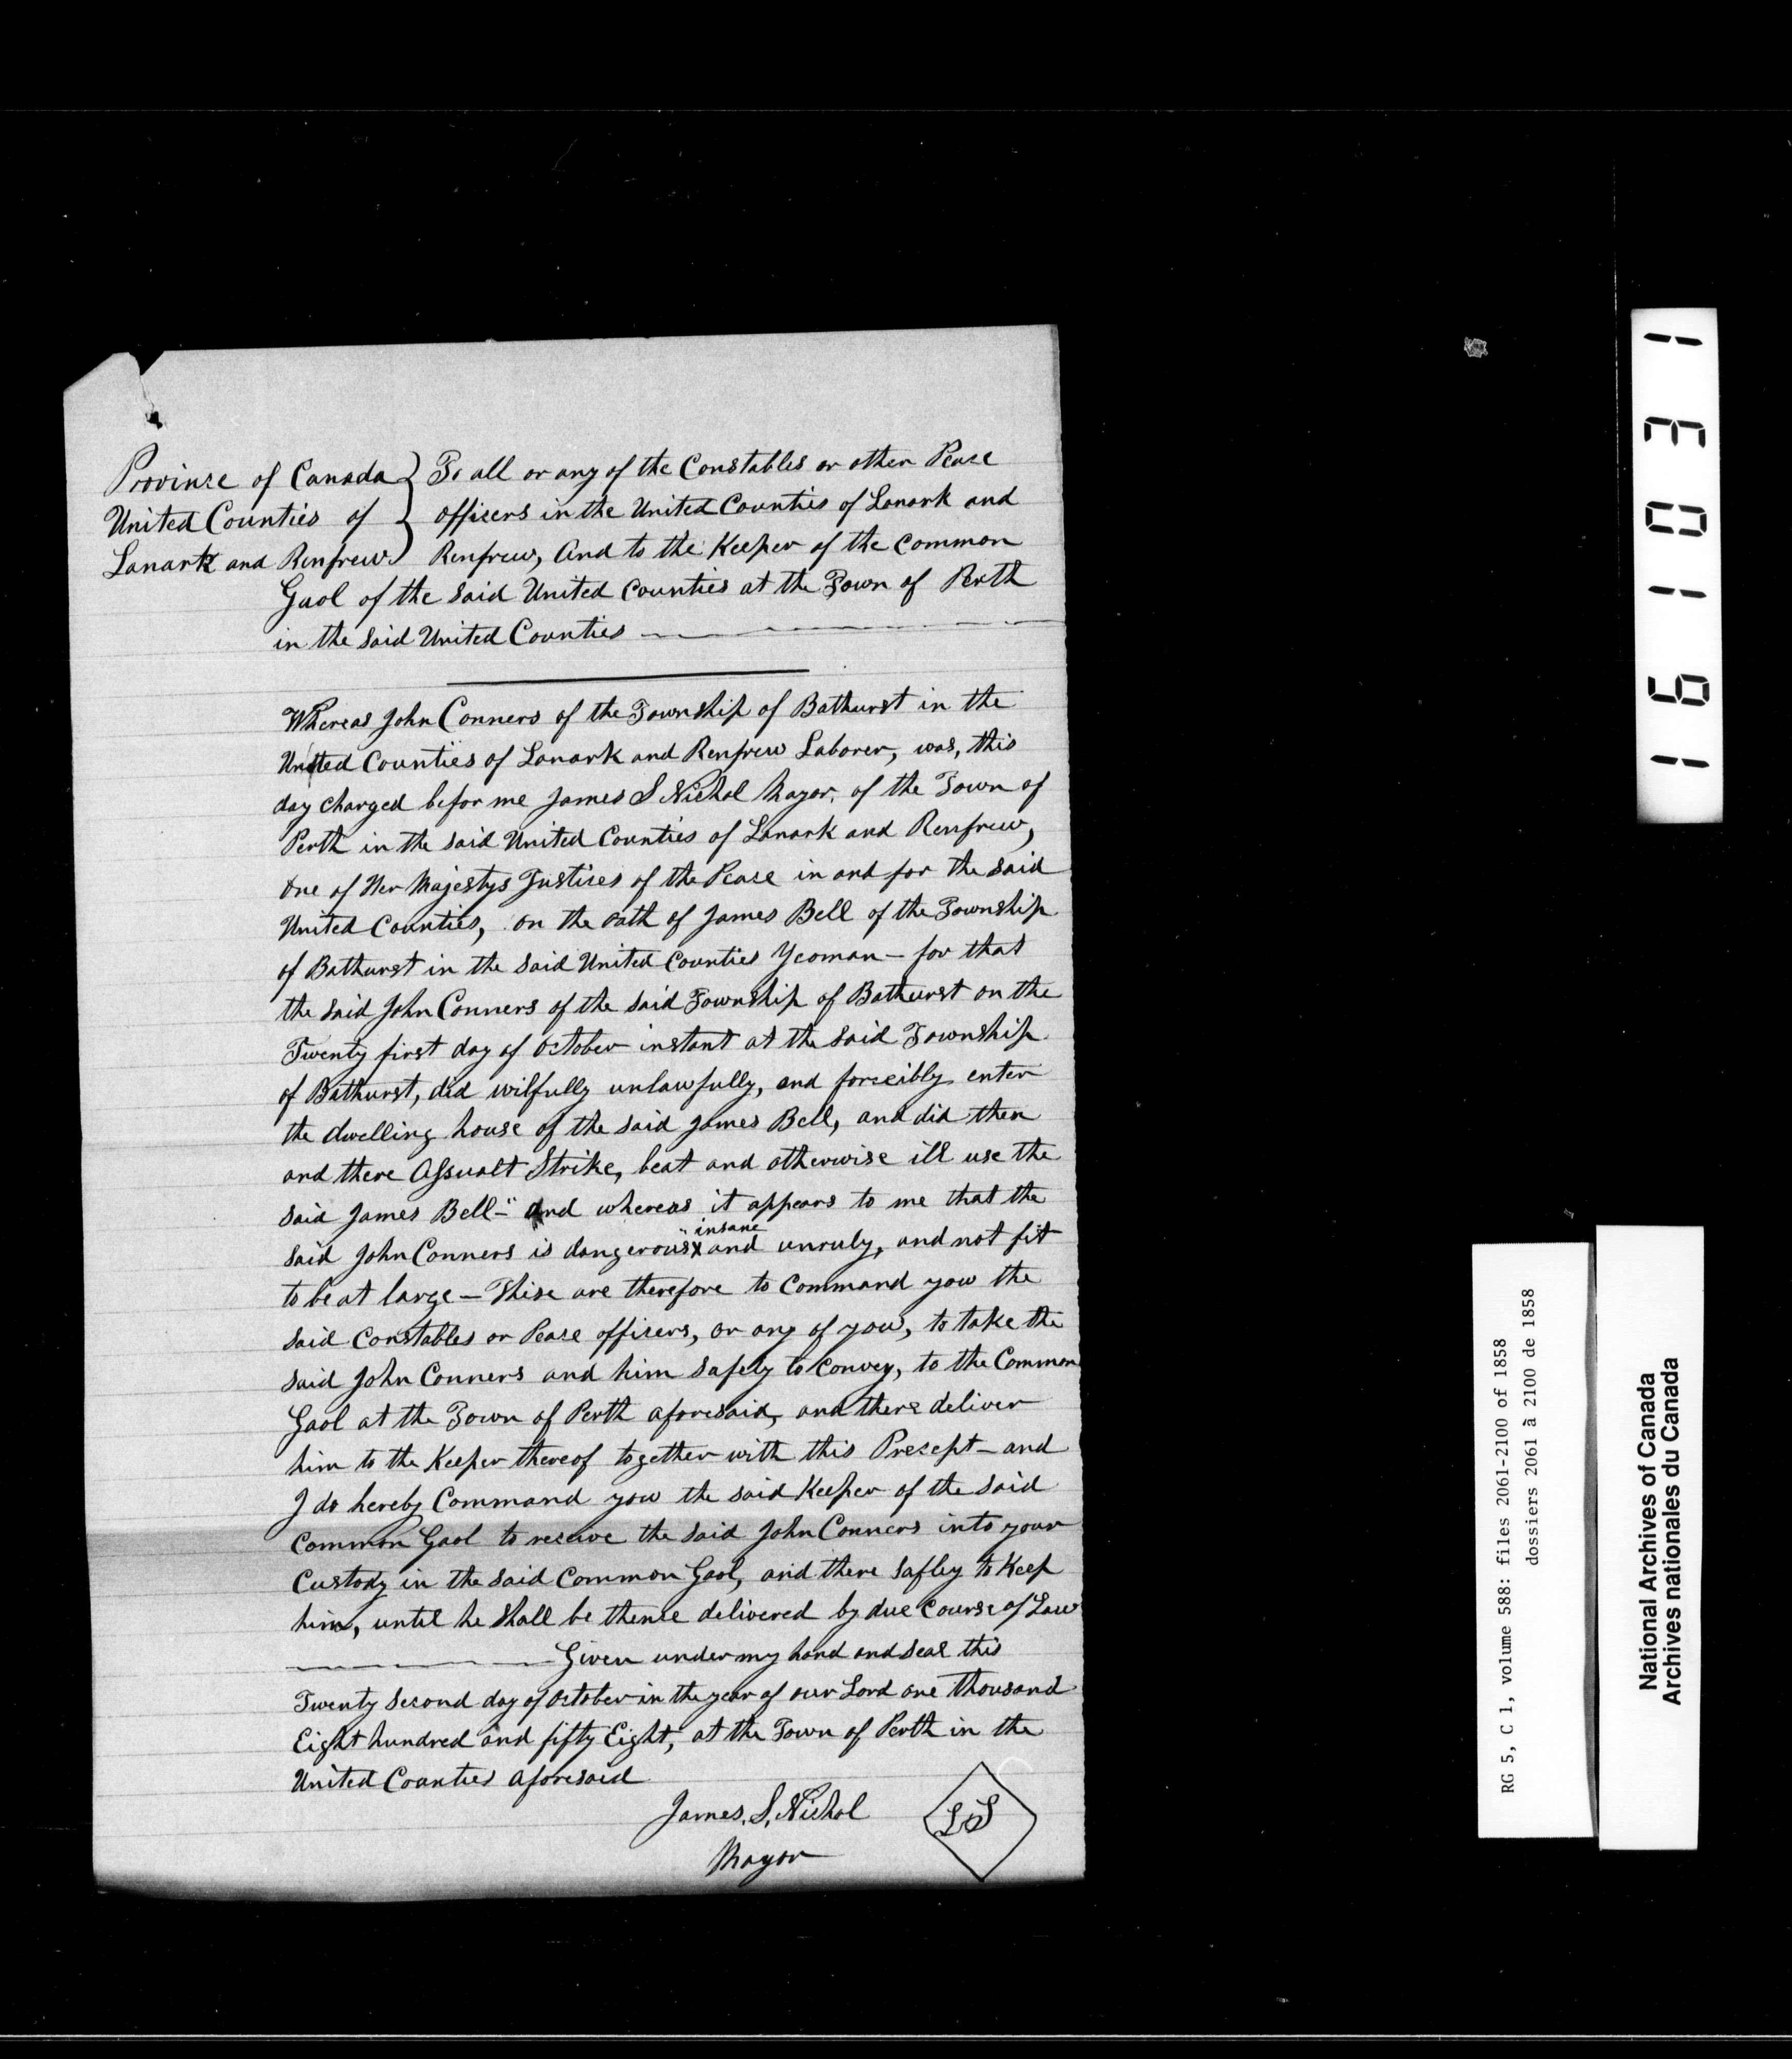 Province of Canada } To all or any of the Constables or other Peace
United Counties of } officers in the United Counties of Lanark and
Lanark and Renfrew } Renfrew, And to the Keeper of the common
Gaol of the said United Counties at the Town of Perth
in the said United Counties
Whereas John Conners of the Township of Bathurst in the
United Counties of Lanark and Renfrew Laborer, was, this
day charged befor me James S Nichol Mayor, of the Town of
Perth in the said United Counties of Lanark and Renfrew,
One of Her Majestys Justices of the Peace in and for the said
United Counties, on the oath of James Bell of the Township
of Bathurst in the said United Counties Yeoman - for that
the said John Conners of the said Township of Bathurst on the
Twenty first day of October instant at the said Township
of Bathurst, did wilfully unlawfully, and forceibly enter
the dwelling house of the said James Bell, and did then
and there Assualt Strike, beat and otherwise ill use the
said James Bell-" And whereas it appears to me that the
"insane
said John Conners is dangerous x and unruly, and not fit
to be at large - These are therefore to Command you the
said Constables or Peace officers, or any of you, to take the
said John Conners and him safely to convey, to the Common
Gaol at the Town of Perth aforesaid, and there deliver
him to the Keeper thereof together with this Precept - and
I do hereby Command you the said Keeper of the said
Common Gaol to receive the said John Conners into your
Custody in the said Common Gaol, and there safley to Keep
him, until he shall be thence delivered by due Course of Law
Given under my hand and seal this
Twenty second day of October in the year of our Lord one thousand
Eight hundred and fifty Eight, at the Town of Perth in the
United Counties aforesaid
James. S. Nichol
Mayor
LS
161031
RG 5, C 1, volume 588: files 2061-2100 of 1858
dossiers 2061 à 2100 de 1858
National Archives of Canada
Archives nationales du Canada